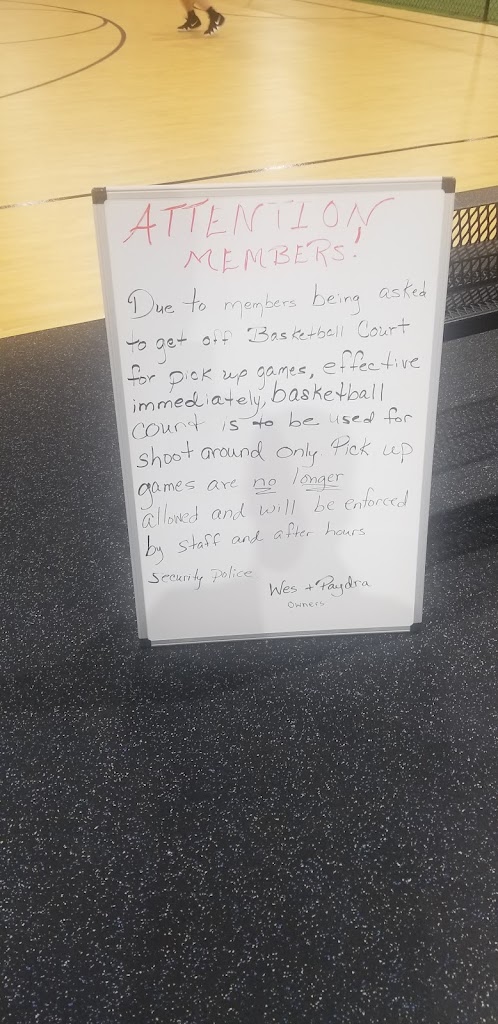 ATTENTION
MEMBERS!
Due to members being asked
to get off Basketball Court
for pick up games, effective
immediately, basketball
court is to be used for
shoot around only. Pick up
games are no longer
allowed and will be enforced
by staff and after hours
security police
Wes + Paydra
owners